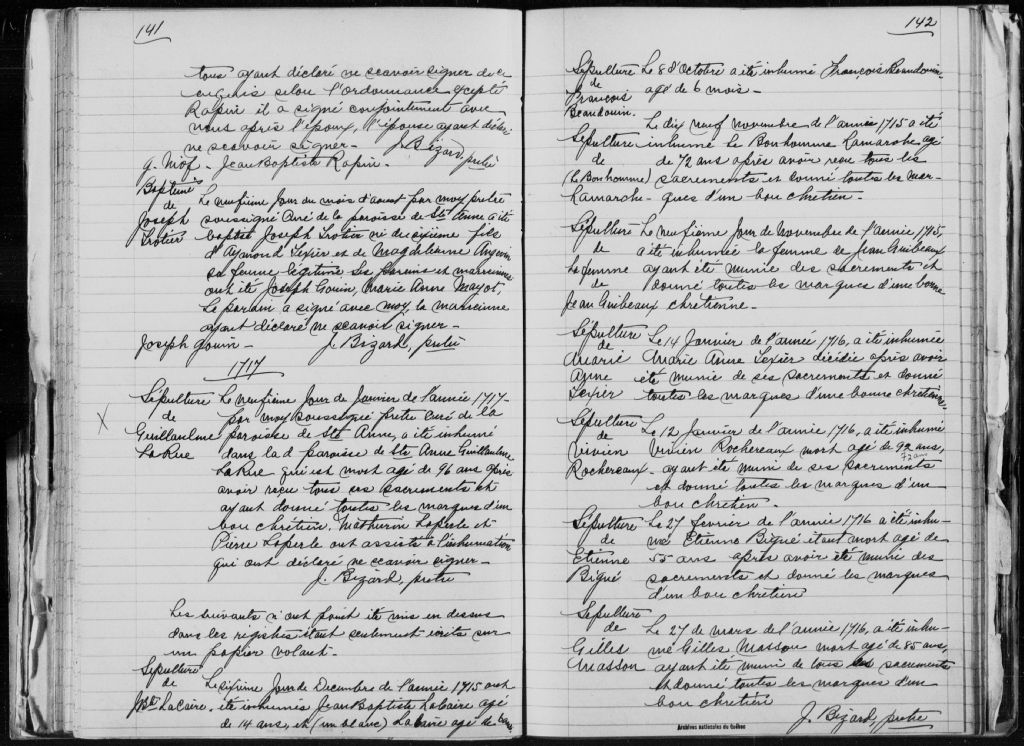 141
tous ayant déclaré ne scavoir signer de ce
enquis selon l'Ordonnance excepté
Rapin il a signé conjointement avec
nous après l'époux, l'épouse ayant déclaré
ne scavoir signer - J. Bizard, prêtre
g. Niof - Jean Baptiste Rapin -
Baptême Le neufième Jour du mois d'aoust par moy prêtre
de soussigné Curé de la paroisse de Ste Anne a été
Joseph baptisé Joseph Trotier né du sixième fils
Trotier d'Aymond Texier et de Magdeleine
sa femme légitime Ses parains et marainne
ont été Joseph Gouin, Marie Anne Mayot,
Le parain a signé avec moy, la marainne
ayant déclaré ne scavoir signer -
Joseph Gouin - J. Bizard, prêtre
1717
Sépulture Le neufième Jour de Janvier de l'année 1717 -
X de par moy soussigné prêtre curé de la
Guillaulme paroisse de Ste Anne, a été inhumé
LaRue dans la d paroisse de Ste Anne Guillaulme
LaRue qui est mort agé de 96 ans après
avoir reçu tous ses sacrements et
ayant donné toutes les marques d'un
bon chrétien. Mathurin Laperle et
Pierre Laperle ont assisté à l'inhumation
qui ont déclaré ne scavoir signer -
J. Bizard, prêtre
Les suivants n'ont point été mis en dessus
dans les registres étant seulement écrits sur
un papier volant -
Sépulture
de Le sixième Jour de Decembre de l'année 1715 ont
JBte LaCaire, été inhumés Jean Baptiste LaCaire agé
de 14 ans, et (un blanc) LaCaire agé de
142
Sépulture Le 8 d'Octobre a été inhumé François Beaudouin
de agé de 6 mois -
François
Beaudouin. Le dix neuf novembre de l'année 1715 a été
Sépulture inhumé Le Bonhomme Lamarche agé
de de 72 ans après avoir reçu tous les
(Le Bonhomme) sacrements et donné toutes les mar-
Lamarche - ques d'un bon chrétien -
Sépulture Le neufième Jour de Novembre de l'année 1715,
de a été inhumée la femme de Jean Guibeaux
La femme ayant été munie des sacrements et
de donné toutes les marques d'une bonne
Jean Guibeaux chrétienne -
Sépulture Le 14 Janvier de l'année 1716, a été inhumée
de
Marie Marie Anne Texier décédée après avoir
Anne été munie de ses sacrements et donné
Texier toutes les marques d'une bonne chrétienne.
Sépulture Le 12 Janvier de l'année 1716, a été inhumé
de
Vivien Vivien Rochereaux mort agé de 92 ans,
72 ans
Rochereaux - ayant été muni de ses sacrements
et donné toutes les marques d'un
bon chrétien -
Sépulture Le 27 fevrier de l'année 1716 a été inhu-
de mé Etienne Bigué étant mort agé de
Etienne 55 ans après avoir été munie des
Bigué sacrements et donné les marques
d'un bon chrétien
Sépulture
de Le 27 de mars de l'année 1716, a été inhu-
Gilles mé Gilles Masson mort agé de 85 ans,
Masson ayant été muni de tous les sacrements
et donné toutes les marques d'un
bon chrétien
J. Bizard, prêtre
Archives nationales du Québec